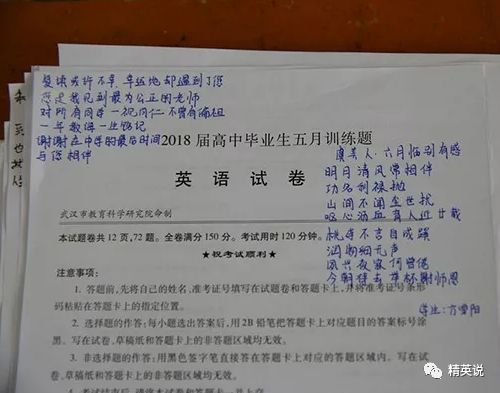 复读或许不幸，幸运地却遇到了您
您是我见到最为公正的老师
对所有同学一视同仁 不曾有偏袒
一年教悔一生铭记
谢谢在中学的最后时间
与您相伴
2018届高中毕业生五月训练题
英 语 试 卷
武汉市教育科学研究院命制
本试题卷共12页,72题。全卷满分150分。考试用时120分钟。
★祝考试顺利★
注意事项：
1. 答题前,先将自己的姓名、准考证号填写在试题卷和答题卡上,并将准考证号条形
码粘贴在答题卡上的指定位置。
2. 选择题的作答:每小题选出答案后,用2B铅笔把答题卡上对应题目的答案标号涂
黑。写在试卷、草稿纸和答题卡上的非答题区域均无效。
3. 非选择题的作答:用黑色签字笔直接答在答题卡上对应的答题区域内。写在试
卷、草稿纸和答题卡上的非答题区域均无效。
虞美人·六月临别有感
明月清风常相伴
功名利禄抛
山涧不闻尘世扰
呕心沥血育人近廿载
桃李不言自成蹊
润物细无声
夙兴夜寐何曾倦
今朝待去 举杯谢师恩
学生：方雪阳
精英说